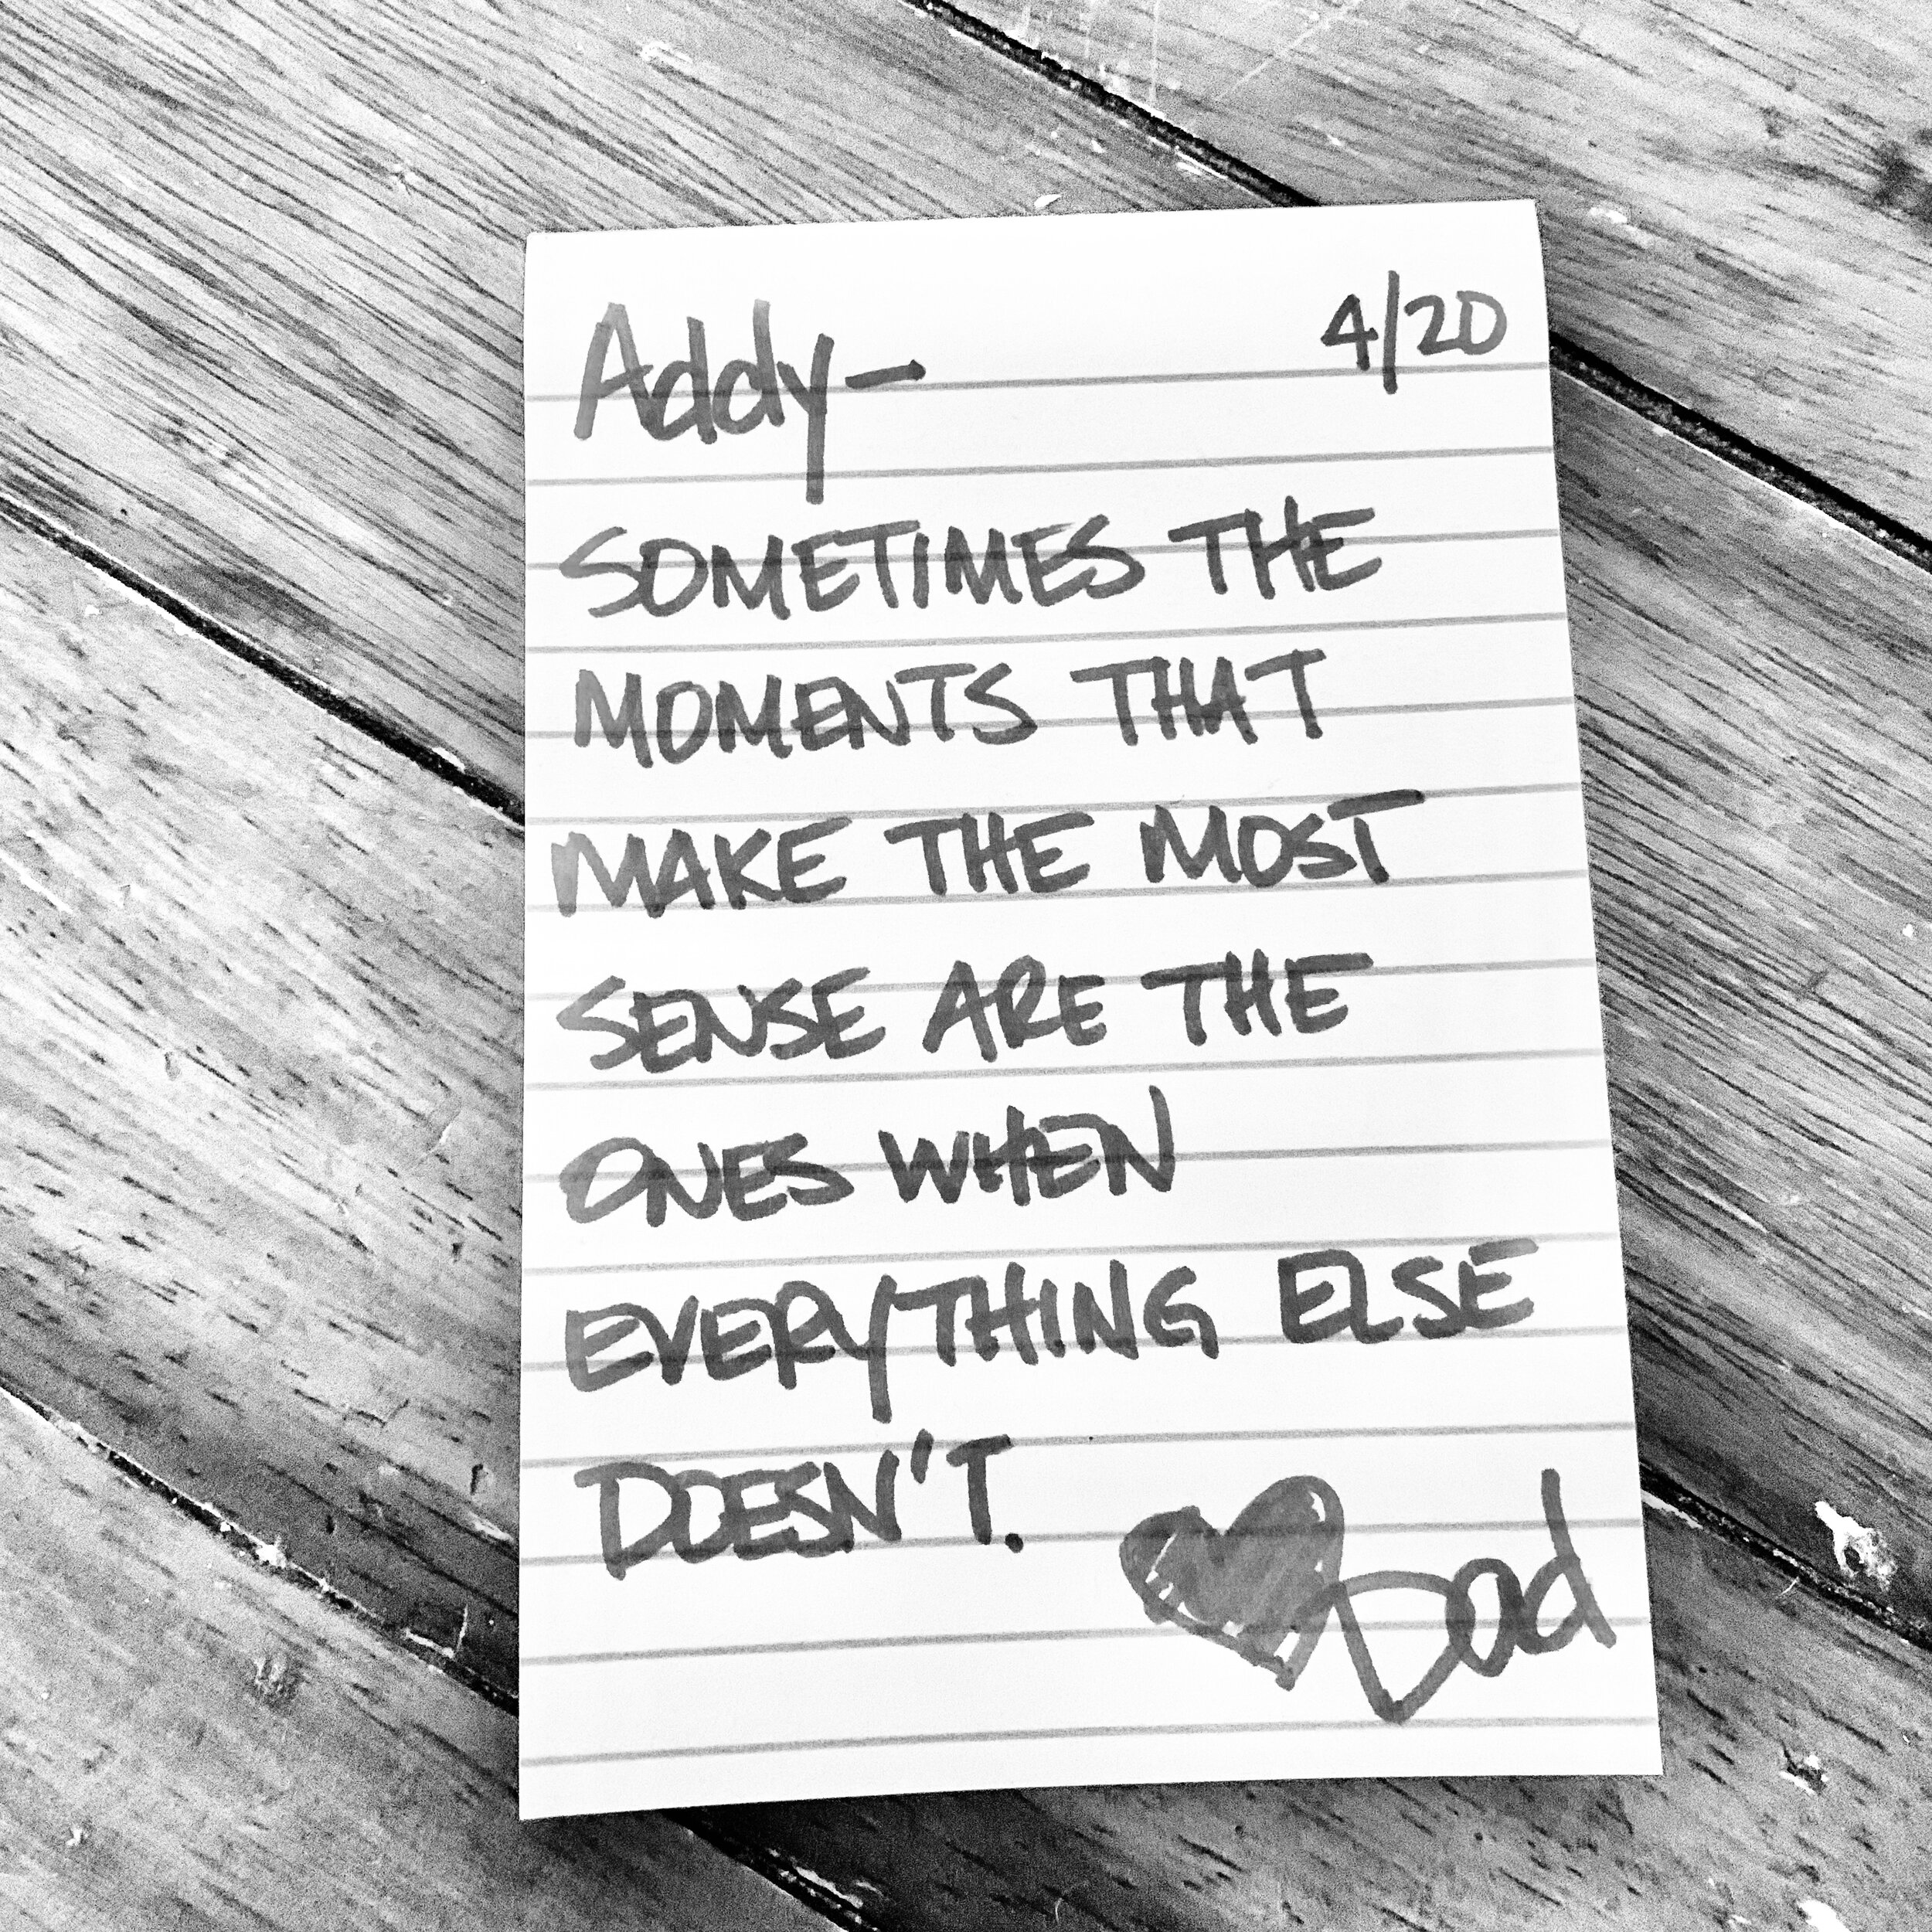 Addy- 4/20
SOMETIMES THE
MOMENTS THAT
MAKE THE MOST
SENSE ARE THE
ONES WHEN
EVERYTHING ELSE
DOESN'T.
Dad